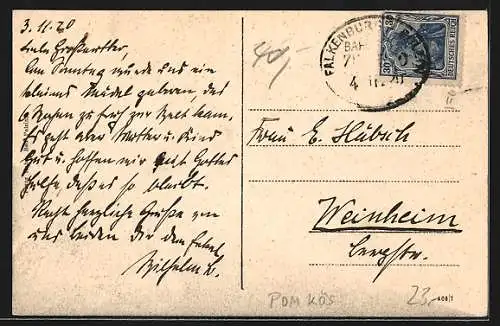 3.11.20
Liebe Großmutter,
Am Sonntag wurde uns ein
kleines Mädel geboren, das
6 Wochen zu früh zur Welt kam.
Es geht aber Mutter u. Kind
gut u. hoffen wir mit Gottes
Hilfe, daß es so bleibt.
Recht herzliche Grüße von
uns beiden Dir dein Enkel
Wilhelm
40,-
FALKENBURG
BAH
4 11.20
30
DEUTSCHES REICH
Frau E. Hübsch
Weinheim
Bergstr.
POM KÖS
23,-